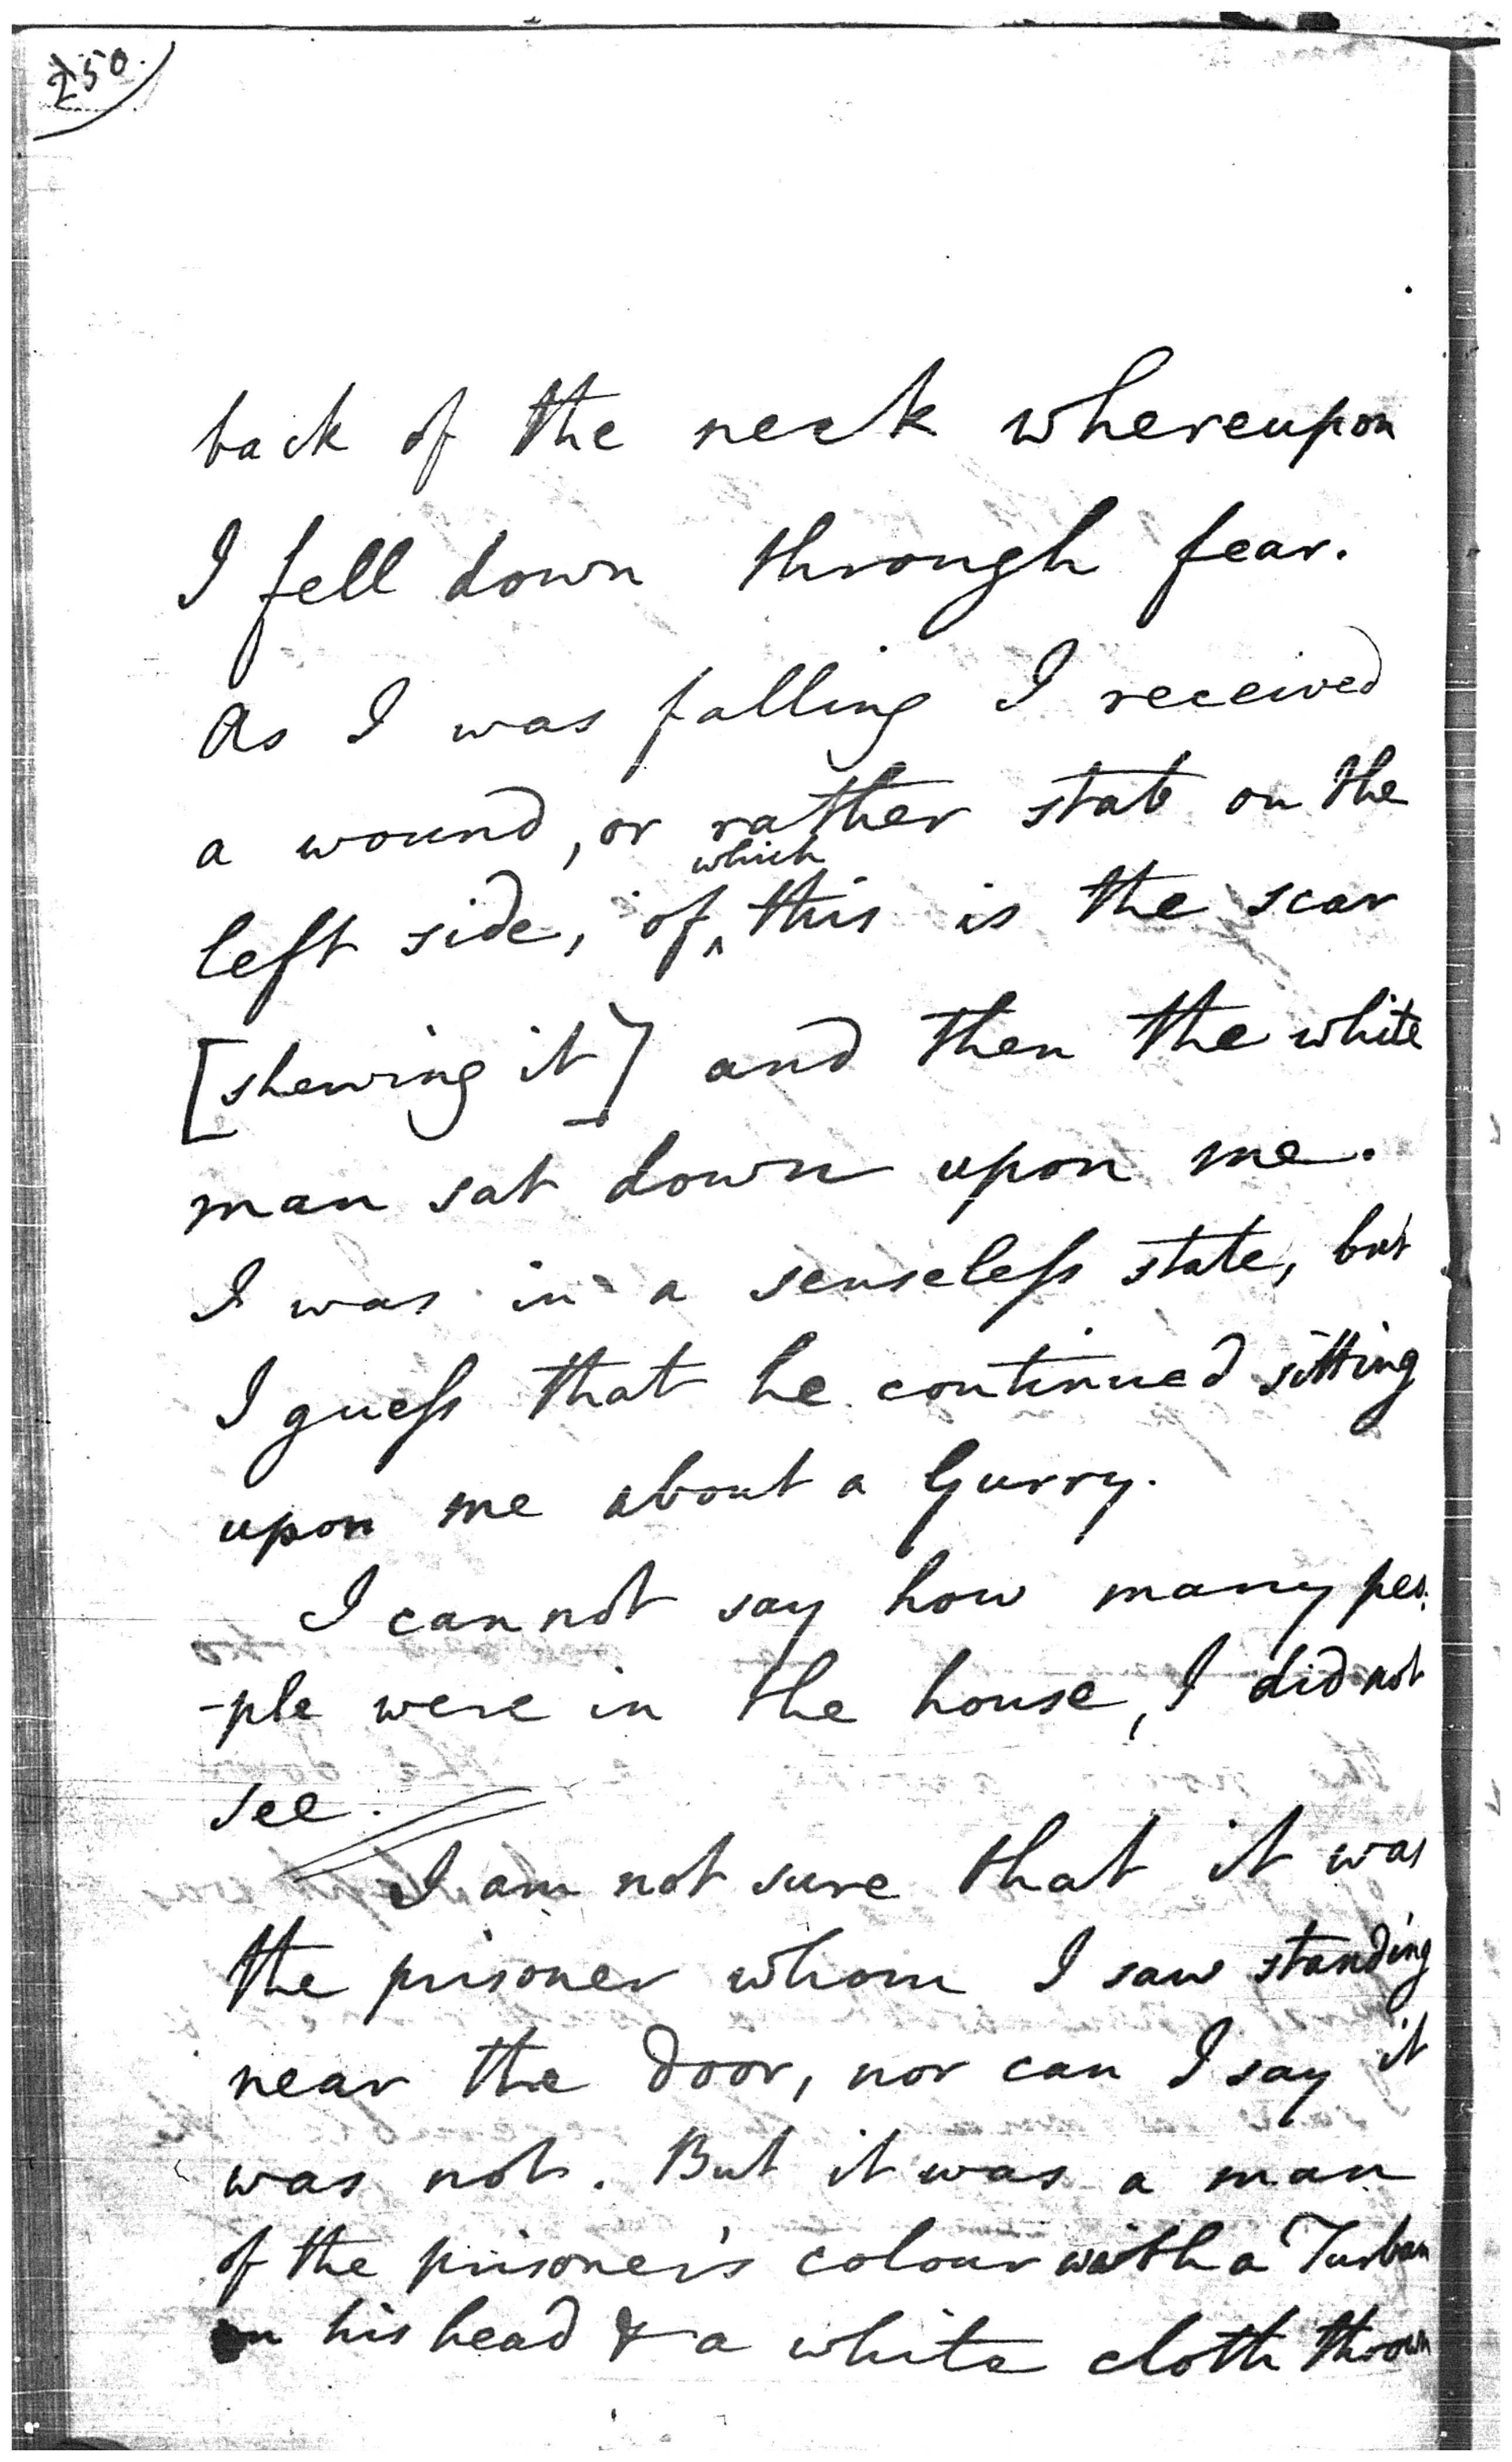 250.
back of the neck whereupon
I fell down through fear.
As I was falling I received
a wound, or rather stab on the
which
left side, of this is the scar
[shewing it] and then the white
man sat down upon me.
I was in a senseless state, but
I guess that he continued sitting
upon me about a Gurry.
I cannot say how many peo
-ple were in the house, I did not
see.
I am not sure that it was
the prisoner whom I saw standing
near the door, nor can I say it
was not. But it was a man
of the prisoner's colour with a Turban
on his head & a white cloth thrown